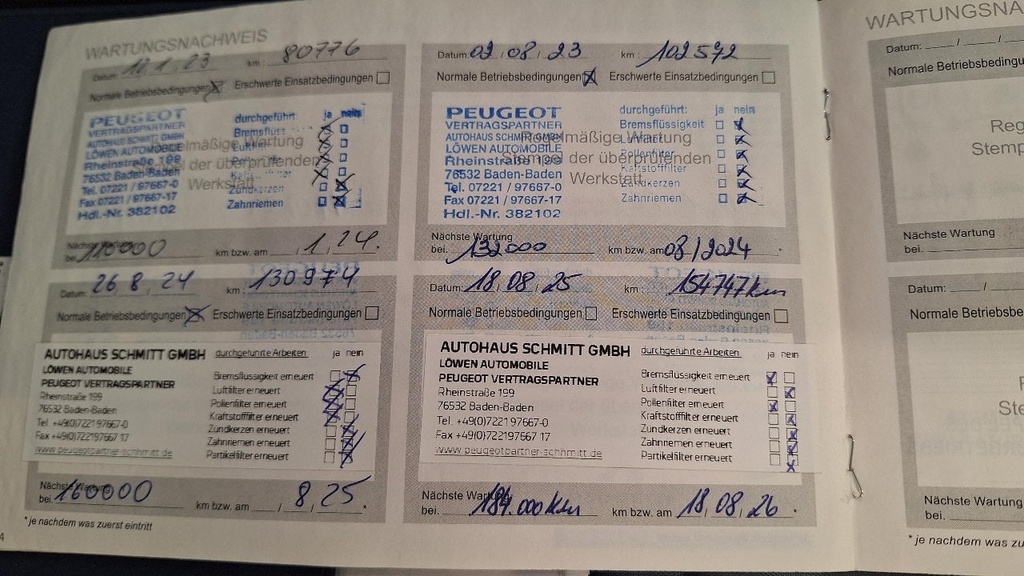 WARTUNGSNACHWEIS
Datum: 12.1.23 km: 80776
Normale Betriebsbedingungen Erschwerte Einsatzbedingungen
PEUGEOT
VERTRAGSPARTNER
AUTOHAUS SCHMITT GMBH
LÖWEN AUTOMOBILE
Rheinstraße 199
76532 Baden-Baden
Tel. 07221 / 97667-0
Fax 07221 / 97667-17
Hdl.-Nr. 382102
durchgeführt: ja nein
Zündkerzen
Zahnriemen
Regelmäßige Wartung
Stempel der überprüfenden
Werkstatt
Nächste Wartung
bei. 110000 km bzw. am 1.24.
Datum: 02.08.23 km: 102572
Normale Betriebsbedingungen Erschwerte Einsatzbedingungen
PEUGEOT
VERTRAGSPARTNER
AUTOHAUS SCHMITT GMBH
LÖWEN AUTOMOBILE
Rheinstraße 199
76532 Baden-Baden
Tel. 07221 / 97667-0
Fax 07221 / 97667-17
Hdl.-Nr. 382102
durchgeführt: ja nein
Bremsflüssigkeit
Luftfilter
Pollenfilter
Kraftstofffilter
Zündkerzen
Zahnriemen
Regelmäßige Wartung
Stempel der überprüfenden
Werkstatt
Nächste Wartung
bei. 132000 km bzw. am 08/2024
Datum: 26.8.24 km: 130974
Normale Betriebsbedingungen Erschwerte Einsatzbedingungen
AUTOHAUS SCHMITT GMBH
LÖWEN AUTOMOBILE
PEUGEOT VERTRAGSPARTNER
Rheinstraße 199
76532 Baden-Baden
Tel. +49(0)7221 97667-0
Fax +49(0)722197667 17
www.peugeotpartner-schhmitt.de
durchgeführte Arbeiten ja nein
Bremsflüssigkeit erneuert
Luftfilter erneuert
Pollenfilter erneuert
Kraftstofffilter erneuert
Zündkerzen erneuert
Zahnriemen erneuert
Partikelfilter erneuert
Nächste Wartung
bei. 160000 km bzw. am 8.25.
Datum: 18.08.25 km: 154747km
Normale Betriebsbedingungen Erschwerte Einsatzbedingungen
AUTOHAUS SCHMITT GMBH
LÖWEN AUTOMOBILE
PEUGEOT VERTRAGSPARTNER
Rheinstraße 199
76532 Baden-Baden
Tel. +49(0)7221 97667-0
Fax +49(0)722197667 17
www.peugeotpartner-schhmitt.de
durchgeführte Arbeiten ja nein
Bremsflüssigkeit erneuert
Luftfilter erneuert
Pollenfilter erneuert
Kraftstofffilter erneuert
Zündkerzen erneuert
Zahnriemen erneuert
Partikelfilter erneuert
Nächste Wartung
bei. 184.000km km bzw. am 18.08.26.
* je nachdem was zuerst eintritt
4
WARTUNGSNA
Datum: / /
Normale Betriebsbedingu
Reg
Stemp
Nächste Wartung
bei.
Datum: /
Normale Betriebsbe
Ste
Nächste Wartung
bei.
* je nachdem was zu